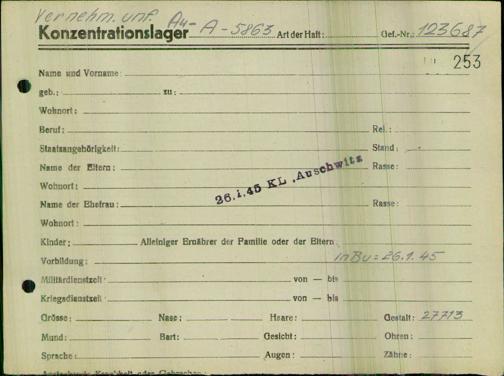 Vernehm. unf. Au-A-5863
Konzentrationslager Art der Haft: Gef.-Nr.: 123687
253
Name und Vorname:
geb.: zu:
Wohnort:
Beruf: Rel.:
Staatsangehörigkeit: Stand:
Name der Eltern: Rasse:
Wohnort:
26.1.45 KL. Auschwitz
Name der Ehefrau: Rasse:
Wohnort:
Kinder: Alleiniger Ernährer der Familie oder der Eltern
Vorbildung: in Bu = 26.1.45
Militärdienstzeit: von — bis
Kriegsdienstzeit: von — bis
Grösse: Nase: Haare: Gestalt: 27713
Mund: Bart: Gesicht: Ohren:
Sprache: Augen: Zähne: